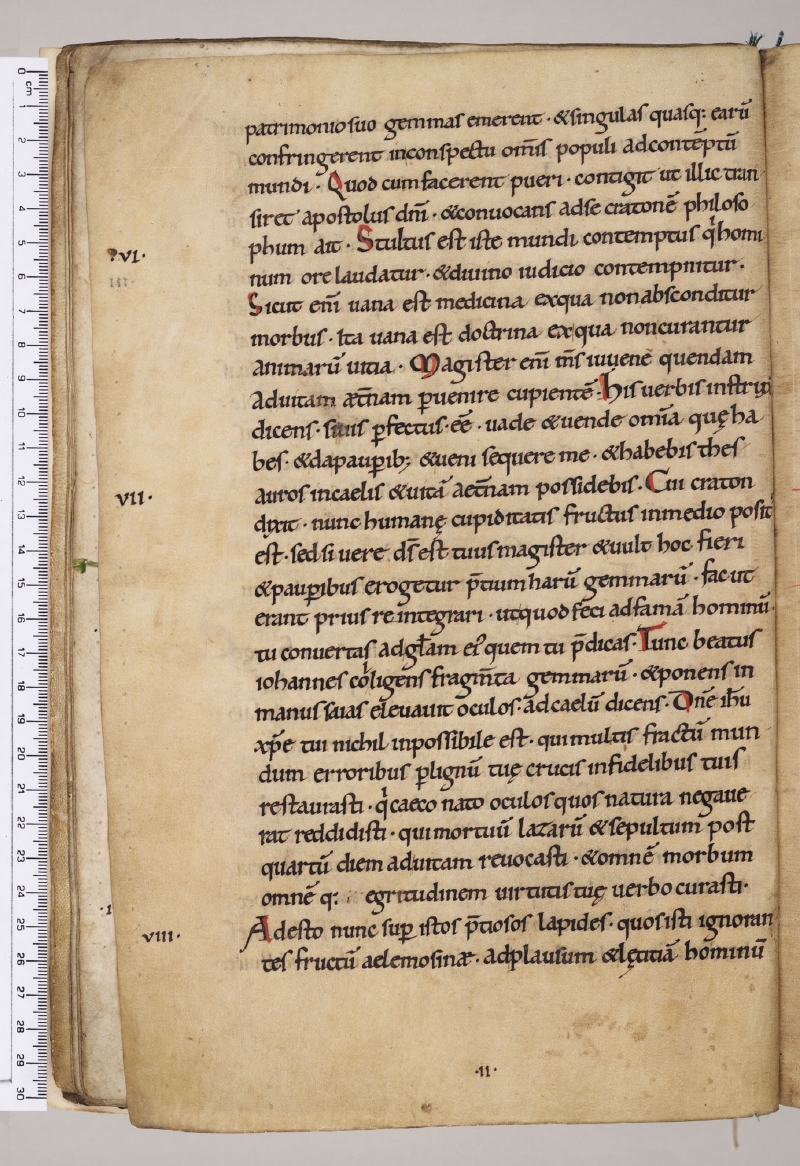 patrimonio suo gemmas emerent · & singulas quasq: earū
confringerent in conspectu om̄is populi ad contēptū
mundi · Quod cum facerent pueri · contigit ut illic tran
siret apostolus dn̄i · & conuocans ad se cratonē philoso
phum ait · Stultus est iste mundi contemptus q̇ homi
?VI·
num ore laudatur · & diuino iudicio contempnitur ·
III
Sicut eni̅ uana est medicina ex qua non absconditur
morbus · Ita uana est doctrina ex qua non curantur
animarū uitia · Magister eni̅ m̄s iuuenē quendam
ad uitam æt̄nam ꝑuenire cupientē · his uerbis instrux
dicens · si uis ꝑfectus · ēē · uade & uende om̄ia quę ha
bes · & da pauꝑib; & ueni sequere me · & habebis thes
auros in caelis & uitā aet̄nam possidebis · Cui craton
VII ·
dixit · nunc humanę cupiditatis fructus in medio posit
est · sed si uere d̄s est tuus magister & uult hoc fieri
& pauꝑibus erogetur p̄tium harū gemmarū · fac ut
erant prius reintegrari · ut quod feci ad famā hominū ·
tu conuertas ad gl̄am ei' quem tu p̄dicas · Tunc beatus
iohannes colligens fragm̄ta gemmarū · & ponens in
manus suas eleuauit oculos · ad caelū dicens · Dn̄e ih̄u
xp̄e cui nichil inpossibile est · qui multis fractū mun
dum erroribus ꝑ lignū tuę crucis in fidelibus tuis
restaurasti · q̇ caeco nato oculos quos natura negaue
rat reddidisti · qui mortuū lazarū & sepultum post
quartū diem ad uitam reuocasti · & omnē morbum
omnē q: egritudinem uirtutis tuę uerbo curasti ·
Adesto nunc suꝑ istos p̄tiosos lapides · quos isti ignoran
VIII ·
tes fructū aelemosinæ · ad plausum & lętitiā hominū
· II ·